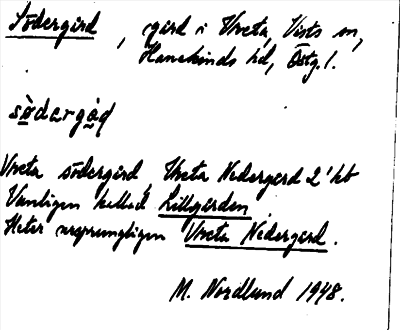 Södergård, gård i Vreta, Vists sn,
Hanekinds hd, Östg. l.
sö̀dargàḍ
Vreta södergård, Vreta Nedergard 2' hb
Vanligen kallad Lillgården.
Heter ursprungligen Vreta Nedergard.
M. Nordlund 1948.